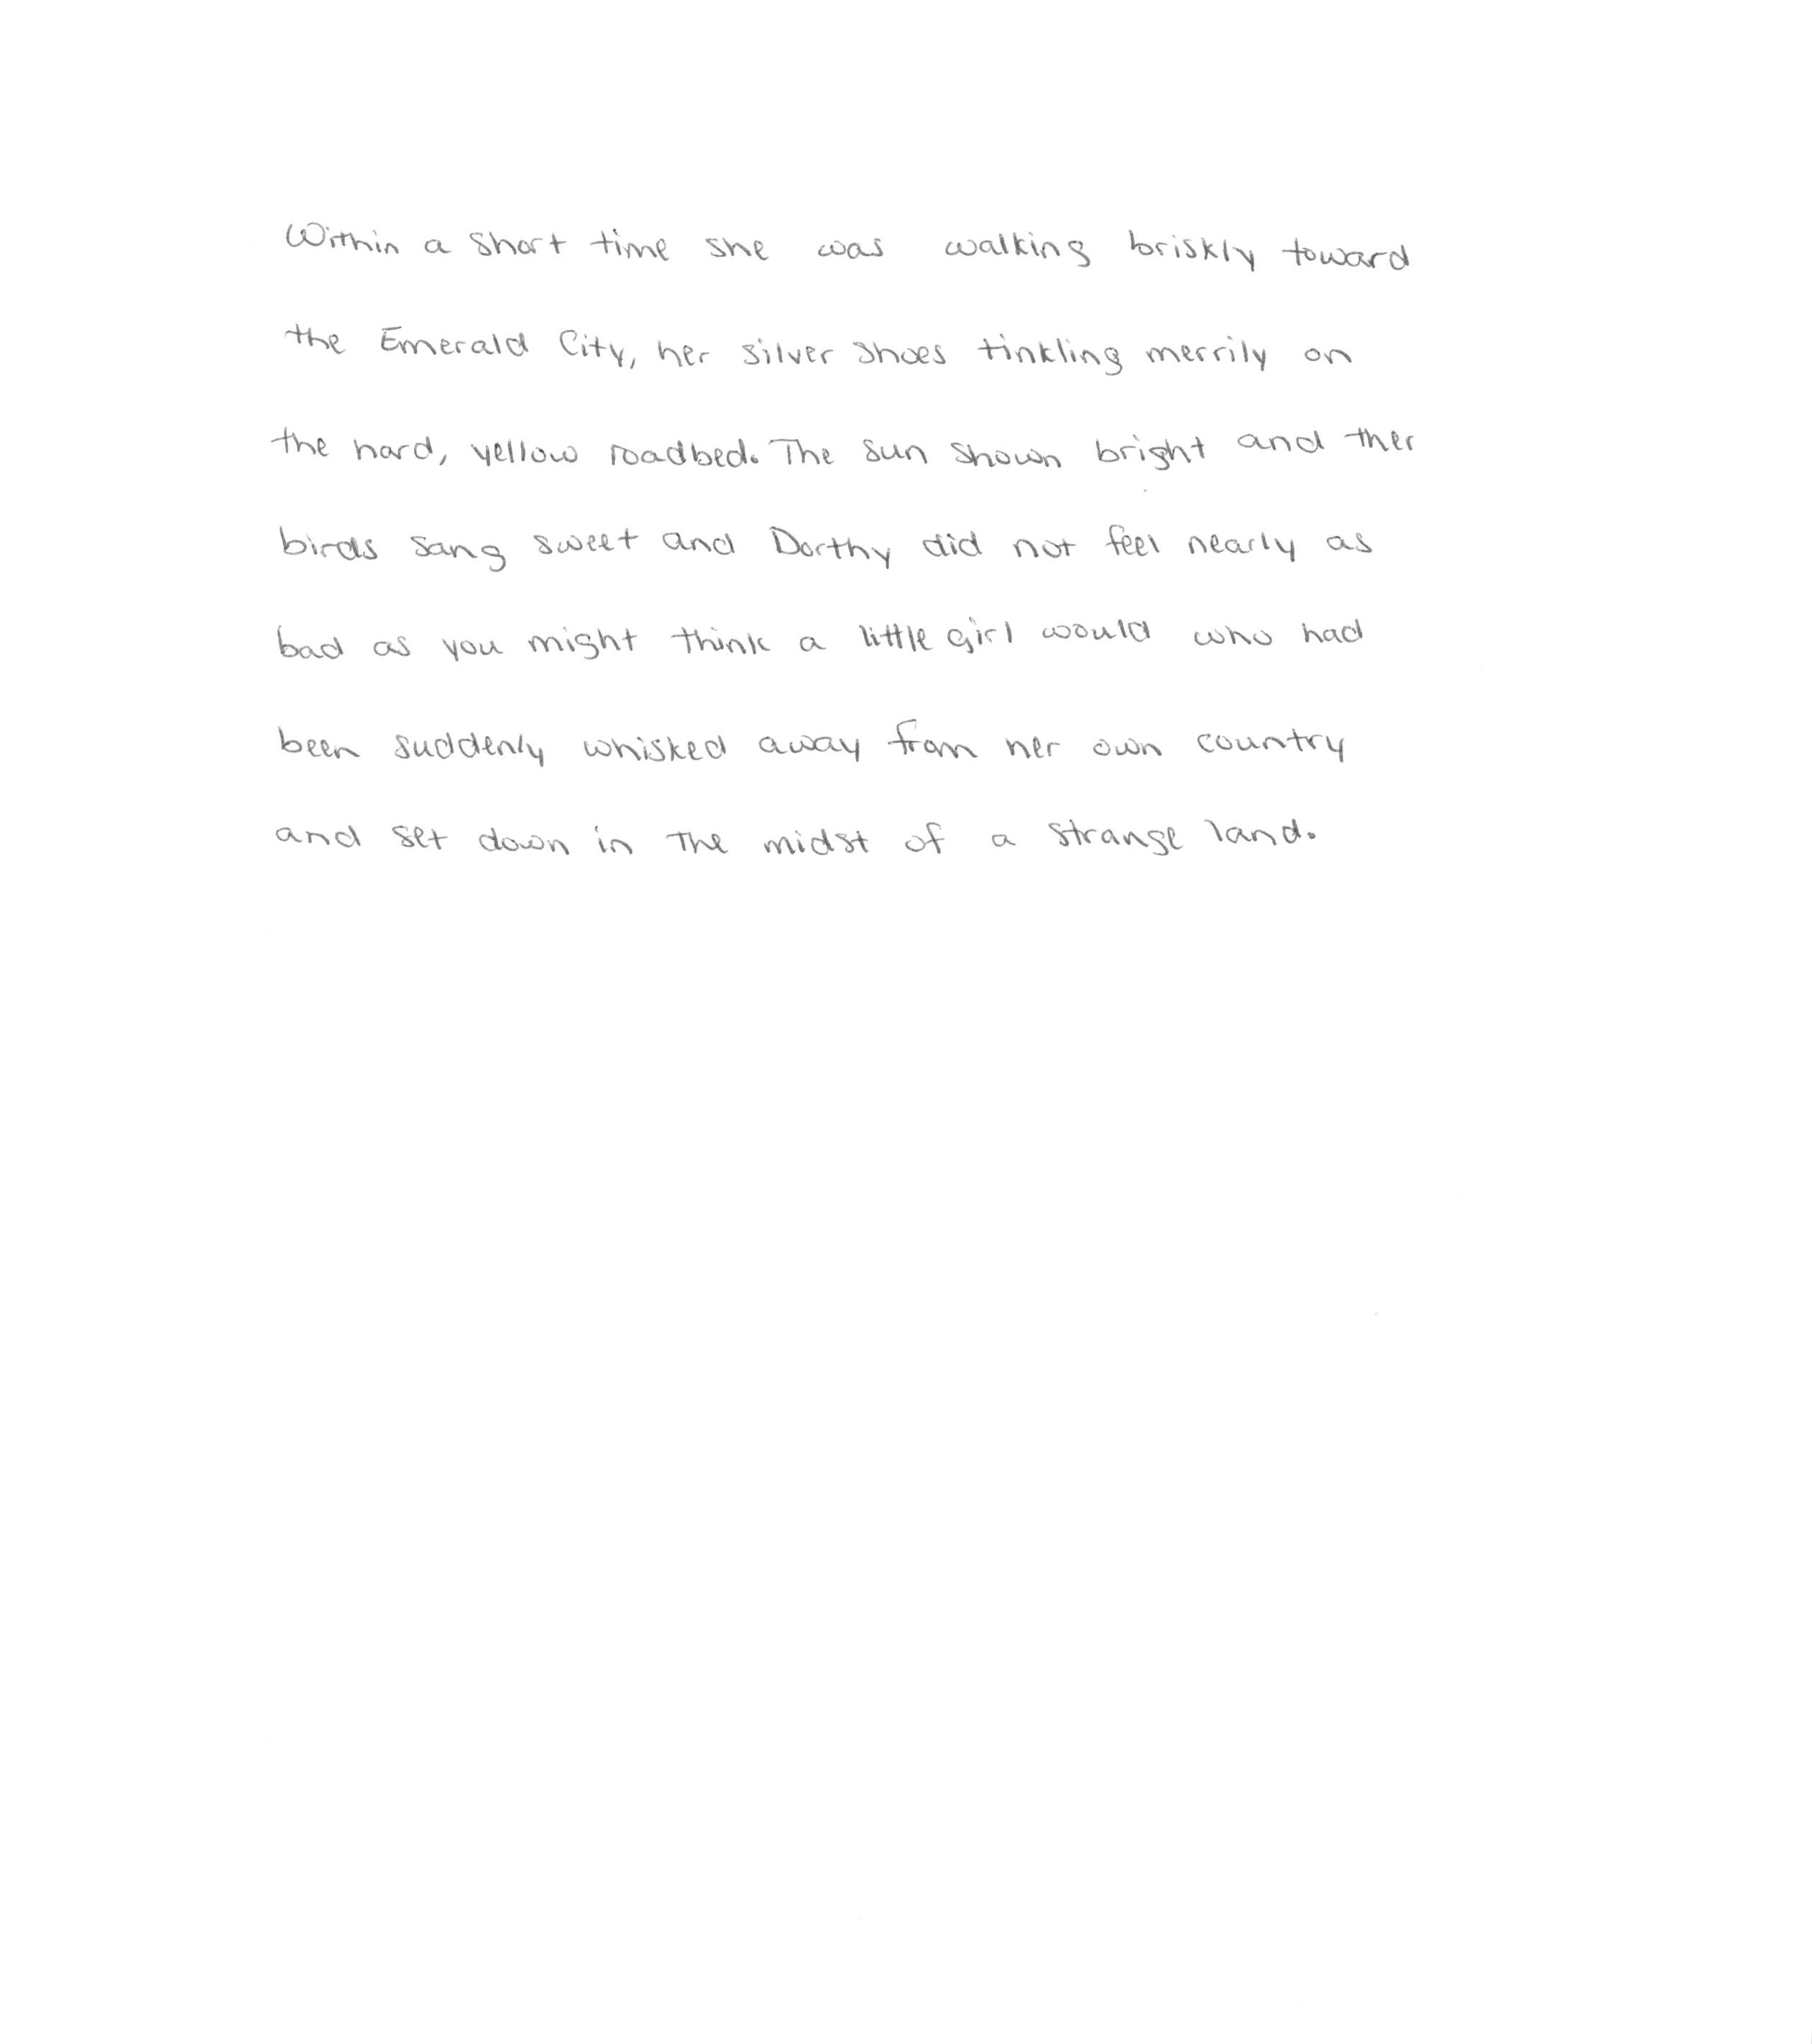 Within a short time she was walking briskly toward
the Emerald City, her silver shoes tinkling merrily on
the hard, yellow roadbed. The sun shown bright and ther
birds sang sweet and Dorthy did not feel nearly as
bad as you might think a little girl would who had
been suddenly whisked away from her own country
and set down in the midst of a strange land.